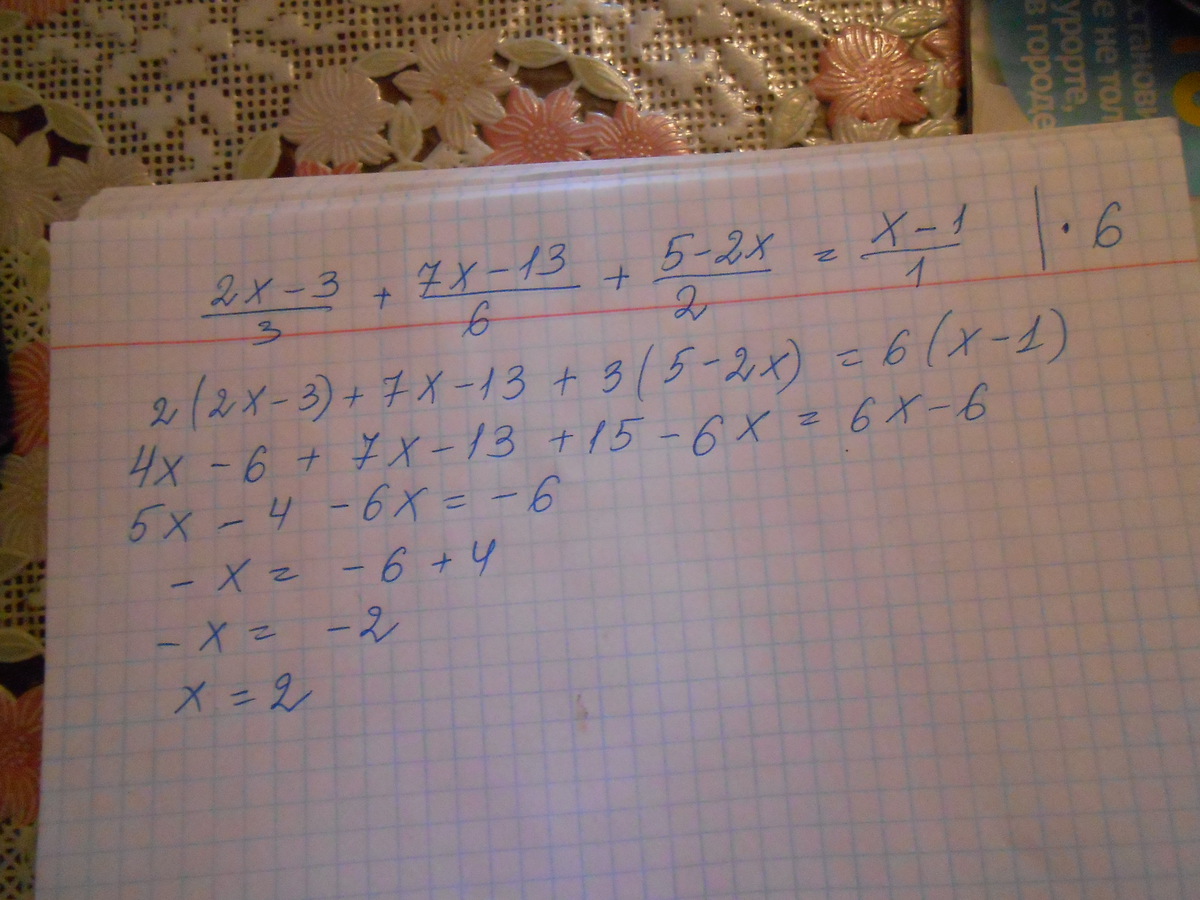 становi
е не тол
урорте,
в городе
(2x-3)/3 + (7x-13)/6 + (5-2x)/2 = (x-1)/1 | · 6
2(2x-3)+7x-13+3(5-2x)=6(x-1)
4x-6+7x-13+15-6x=6x-6
5x-4-6x=-6
-x=-6+4
-x=-2
x=2